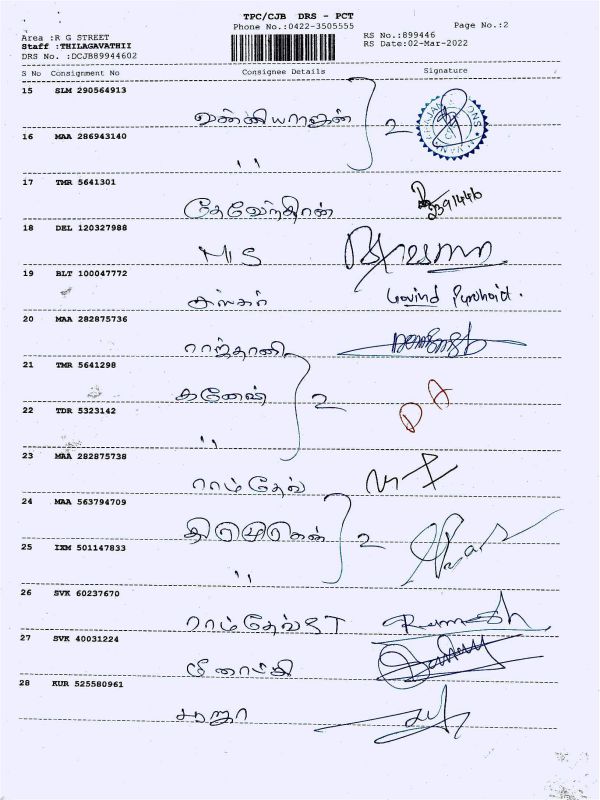 TPC/CJB DRS - PCT
Phone No.:0422-3505555
Page No.:2
Area :R G STREET
RS No.:899446
Staff :THILAGAVATHII
RS Date:02-Mar-2022
DRS No. :DCJB89944602
S No Consignment No Consignee Details Signature
15 SLM 290564913
2
16 MAA 286943140
" 
17 TMR 5641301
தேவேந்திரன்
18 DEL 120327988
M S
19 BLT 100047772
Govind Purohit.
20 MAA 282875736
ராஜ்தானி
21 TMR 5641298
கணேஷ் 2
22 TDR 5323142
"
23 MAA 282875738
ராம்தேவ்
24 MAA 563794709
திருமுருகன் 2
25 IXM 501147833
"
26 SVK 60237670
ராம்தேவ் S T Ramesh
27 SVK 40031224
28 KUR 525580961